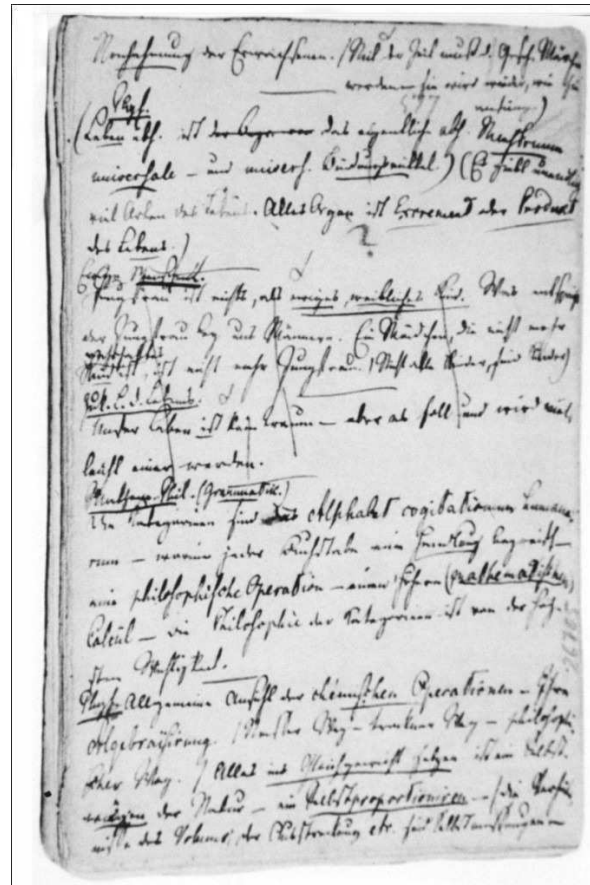 Nachahmung der Erwachsenen. /Mit der Zeit muß d. Gesch. Märchen
werden – sie wird wieder, wie sie
anfieng.)
Phys.
(Leben übh. ist das eigentliche abs. Menstruum
universale – und univers. Bindungsmittel.) (Es giebt unendlich
viel Arten des Lebens. Alles Organ ist Excrement oder Product
des Lebens.)
?
Jungfrau ist nichts, als ewiges, weibliches Kind. Was entspricht
der Jungfrau bey uns Männern. Ein Mädchen, die nicht mehr
wahrhaftes
Kind ist, ist nicht mehr Jungfrau. /Nicht alle Kinder, sind Kinder)
Zuk. L. d. Lebens.
Unser Leben ist kein Traum – aber es soll und wird viel-
leicht einer werden.
Mathem. Phil. (Grammatik.)
Die Kategorieen sind das Alphabet cogitationum humana-
rum – worinn jeder Buchstabe eine Handlung begreift –
eine philosophische Operation – einen höhern (mathematischen)
Calcül – Die Philosophie der Kategorieen ist von der höch-
sten Wichtigkeit.
Phys. Allgemeine Ansicht der chemischen Operationen – Ihre
Algebraisirung. /Nasser Weg – trockner Weg – philosophi-
scher Weg. / Alles ins Gleichgewicht setzen ist ein Selbst-
wägen der Natur – ein Selbstproportioniren – die Verhält-
nisse des Volums, der Ausstreckung etc. sind Selbstmessungen –